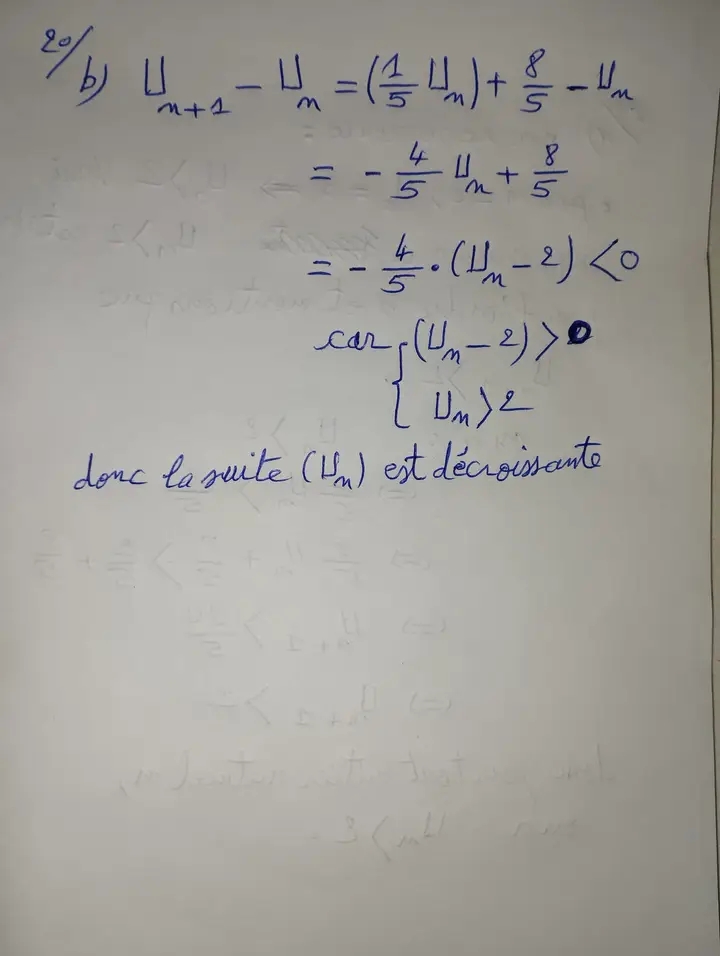 20/
b) U_{n+1} - U_n = (1/5 U_n) + 8/5 - U_n
= - 4/5 U_n + 8/5
= - 4/5 . (U_n - 2) < 0
car { (U_n - 2) > 0
U_n > 2
donc la suite (U_n) est décroissante